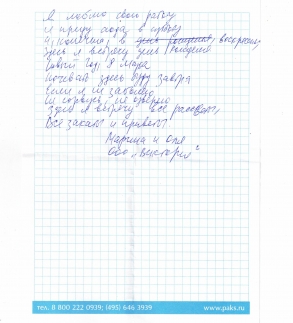 Я люблю свою работу
Я приду сюда в субботу
И, конечно, в воскресенье,
Здесь я встречу день рождения
Новый год, 8 марта
Ночевать здесь буду завтра
Если я не заболею
Не сорвусь, не озверею
Здесь я встречу все рассветы,
Все закаты и приветы.
Марина и Оля
ООО "Виктория"
тел. 8 800 222 0939; (495) 646 3939 www.paks.ru